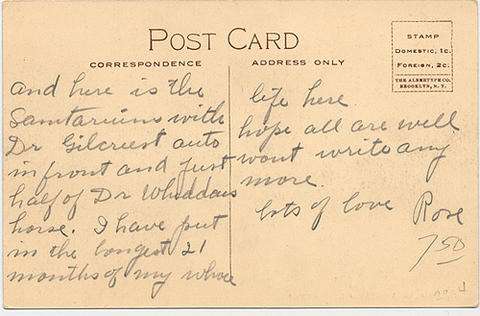 POST CARD
CORRESPONDENCE
ADDRESS ONLY
STAMP
DOMESTIC, 1c.
FOREIGN, 2c.
THE ALBERTYPE CO.
BROOKLYN, N.Y.
and here is the
Sanitariums with
Dr Gilcriest auto
in front and just
half of Dr Whiddais
horse. I have put
in the longest 21
months of my whole
life here.
hope all are well
wont write any
more.
lots of love Rose
750